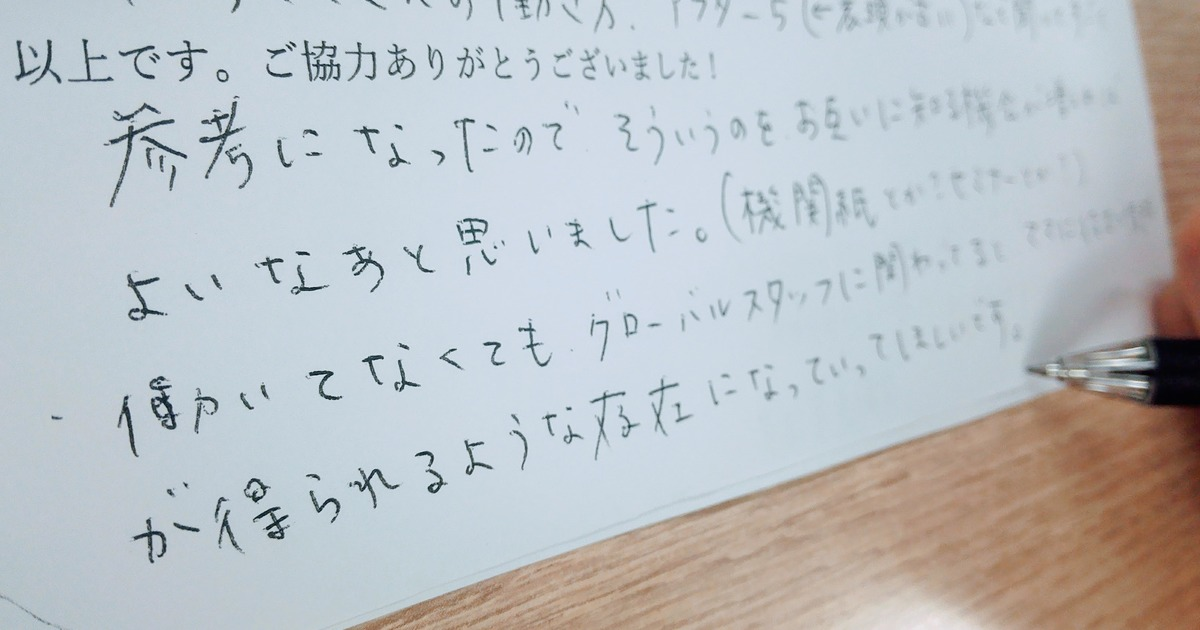 の働き方、アフター5(←表現が古い)など聞いて
以上です。ご協力ありがとうございました!
参考になったので そういうのを、お互いに知る機会が
よいなあと思いました。(機関紙とか?セミナーとか?)
・働いてなくても、グローバルスタッフに関わってると
が得られるような存在になっていってほしいです。